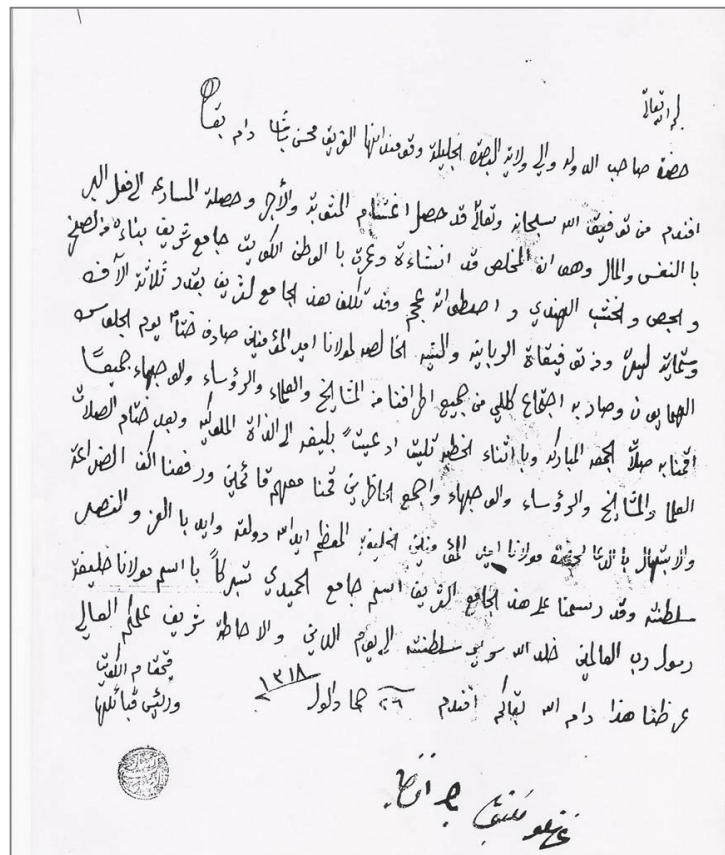 لله تعالى
حضرة صاحب الدولة والي ولاية البصرة الجليلة وقومندانها الفريق محسن باشا دام بقاه
افندم من توفيق الله سبحانه وتعالى قد حصل اغتنام المثوبة والأجر وحصلة المسارعه الى فعل البر
با النفس والمال وهو انه المخلص قد انشاءة وعمرة با الوطن الكويت جامع شريف بناءه من الصخر
والجص والخشب الهندي و اصطوانه عجم وقد تكلف هذا الجامع الشريف بقدر ثلاثة الآف
وستماية ليرة ومن توفيقاة الربانيه والنيه الخالصه لمولانا امير المؤمنين صادف ختامه يوم الجلوس
الهمايون وصار به اجتماع كللي من جميع اطرافنا من المشايخ والعلماء والرؤساء والوجهاء جميعًا
اقمنا به صلاة الجمعه المباركه وبا اثناء الخطبه تليت ادعيتًا بليغه الى الذاة الملوكيه وبعد ختام الصلات
العلما والمشايخ والرؤساء والوجهاء واجمع الحاظرين قمنا معهم قائمين ورفعنا اكف الضراعة
والابتهال بالدعا لحضرة مولانا امير المؤمنين الخليفة المعظم ايد الله دولته وايد با العز والنصر
سلطنته وقد رسمنا على هذا الجامع الشريف اسم جامع الحميدي تبركاً با اسم مولانا خليفة
رسول رب العالمين خلد الله سرير سلطنته الى يوم الدين والاحاطة شريف علمكم العالي
عرظنا هذا دام الله بقاكم افندم ٢٦ جماد الاول ١٣١٨
قيمقام الكويت
ورئيس قبائلها